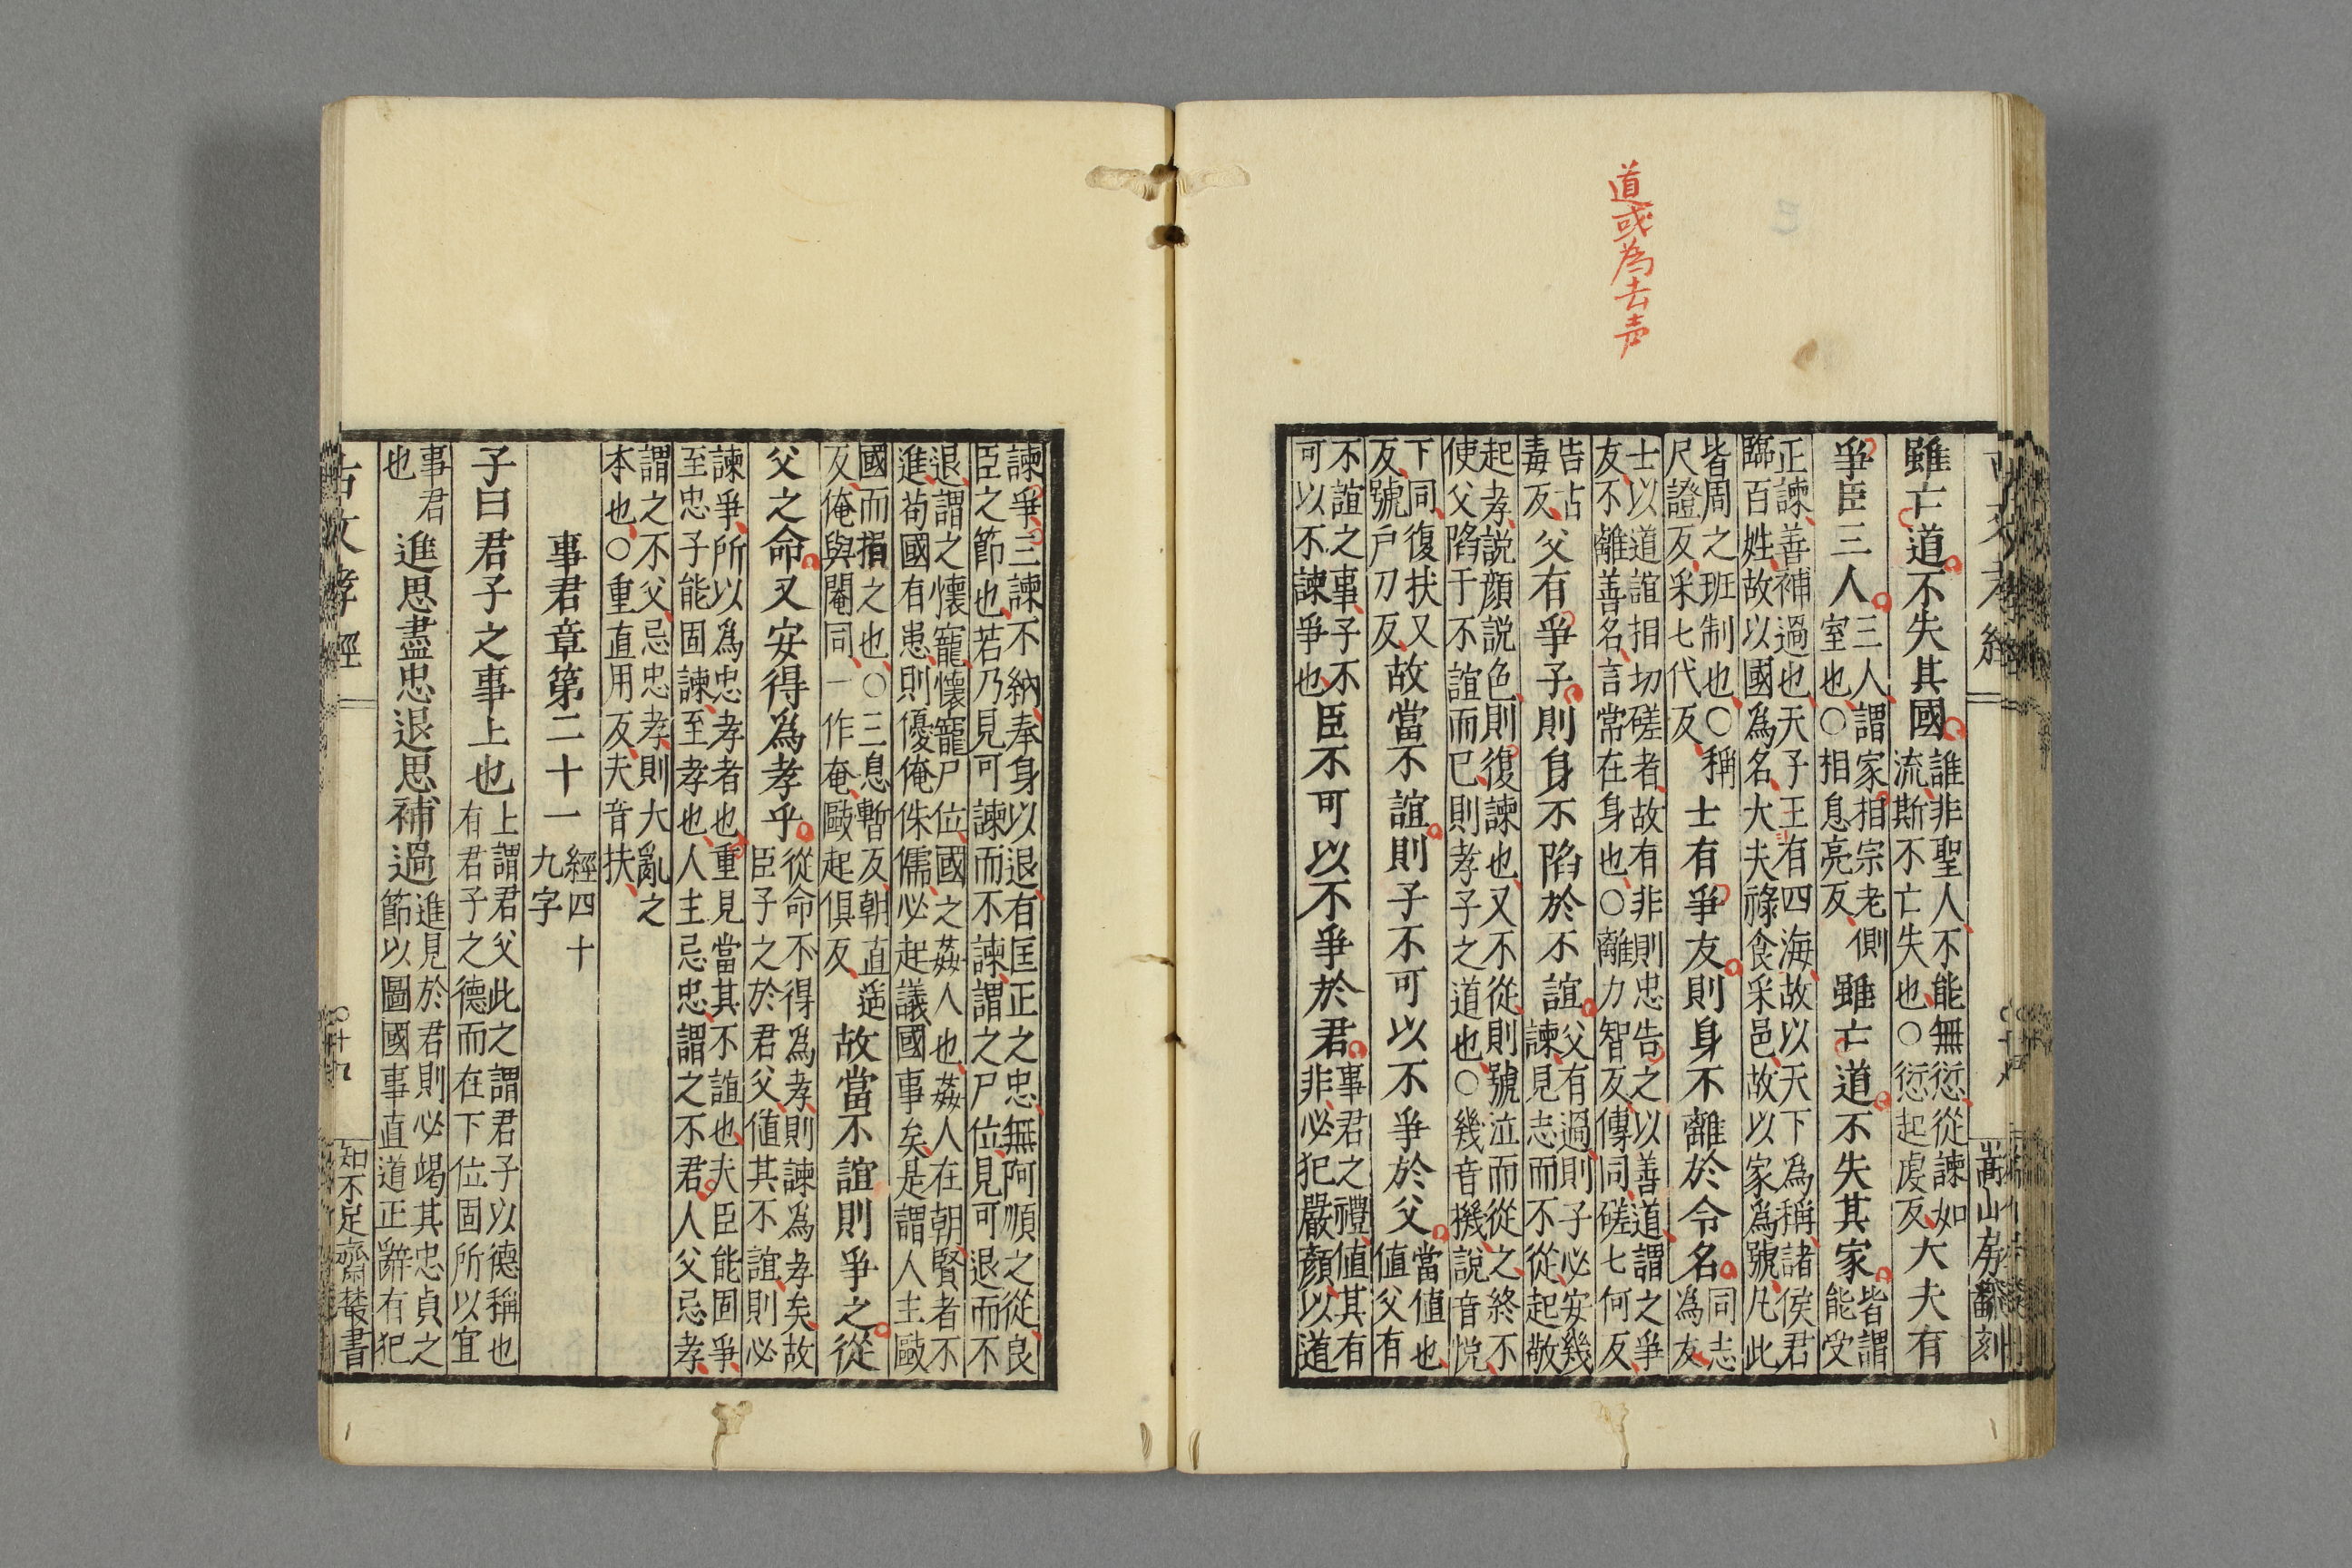 道或為去声
古文孝經
嵩山房翻刻
雖亡道不失其國誰非聖人不能無愆從諫如
流斯不亡失也○愆起虔反大夫有
爭臣三人三人謂家相宗老側
室也○相息亮反雖亡道不失其家皆謂
能受
正諫善補過也天子王有四海故以天下爲稱諸侯君
臨百姓故以國爲名大夫祿食采邑故以家爲號凡此
皆周之班制也○稱
尺證反采七代反士有爭友則身不離於令名同志
爲友
士以道誼相切磋者故有非則忠告之以善道謂之爭
友不離善名言常在身也○離力智反傳同磋七何反
告古
毒反父有爭子則身不陷於不誼父有過則子必安幾
諫見志而不從起敬
起孝說顔說色則復諫也又不從則號泣而從之終不
使父陷于不誼而已則孝子之道也○幾音機說音悅
下同復扶又
反號戶刀反故當不誼則子不可以不爭於父當値也
値父有
不誼之事子不
可以不諫爭也臣不可以不爭於君事君之禮値其有
非必犯嚴顔以道
諫爭三諫不納奉身以退有匡正之忠無阿順之從良
臣之節也若乃見可諫而不諫謂之尸位見可退而不
退謂之懷寵懷寵尸位國之姦人也姦人在朝賢者不
進苟國有患則優俺侏儒必起議國事矣是謂人主毆
國而捐之也○三息暫反朝直遥
反俺與閹同一作奄毆起俱反故當不誼則爭之從
父之命又安得爲孝乎從命不得爲孝則諫爲孝矣故
臣子之於君父値其不誼則必
諫爭所以爲忠孝者也重見當其不誼也夫臣能固爭
至忠子能固諫至孝也人主忌忠謂之不君人父忌孝
謂之不父忌忠孝則大亂之
本也○重直用反夫音扶
事君章第二十一經四十
九字
子曰君子之事上也上謂君父此之謂君子以德稱也
有君子之德而在下位固所以宜
事君
也進思盡忠退思補過進見於君則必竭其忠貞之
節以圖國事直道正辭有犯
古文孝經
十九
知不足齋叢書